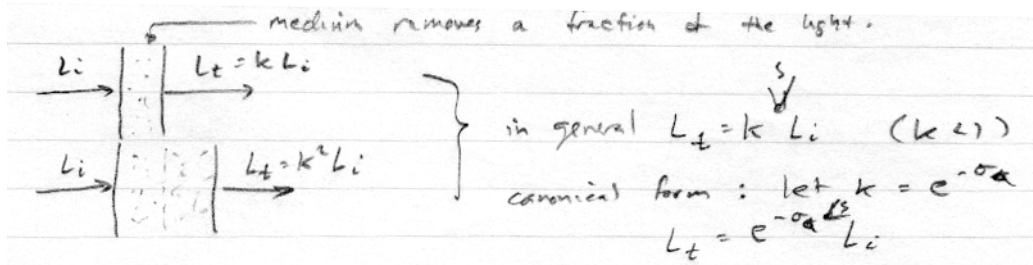 medium removes a fraction of the light.
Li Lt = k Li
in general Lt = k^s Li (k<1)
Li Lt = k² Li
canonical form : let k = e^-σa
Lt = e^-σa s Li